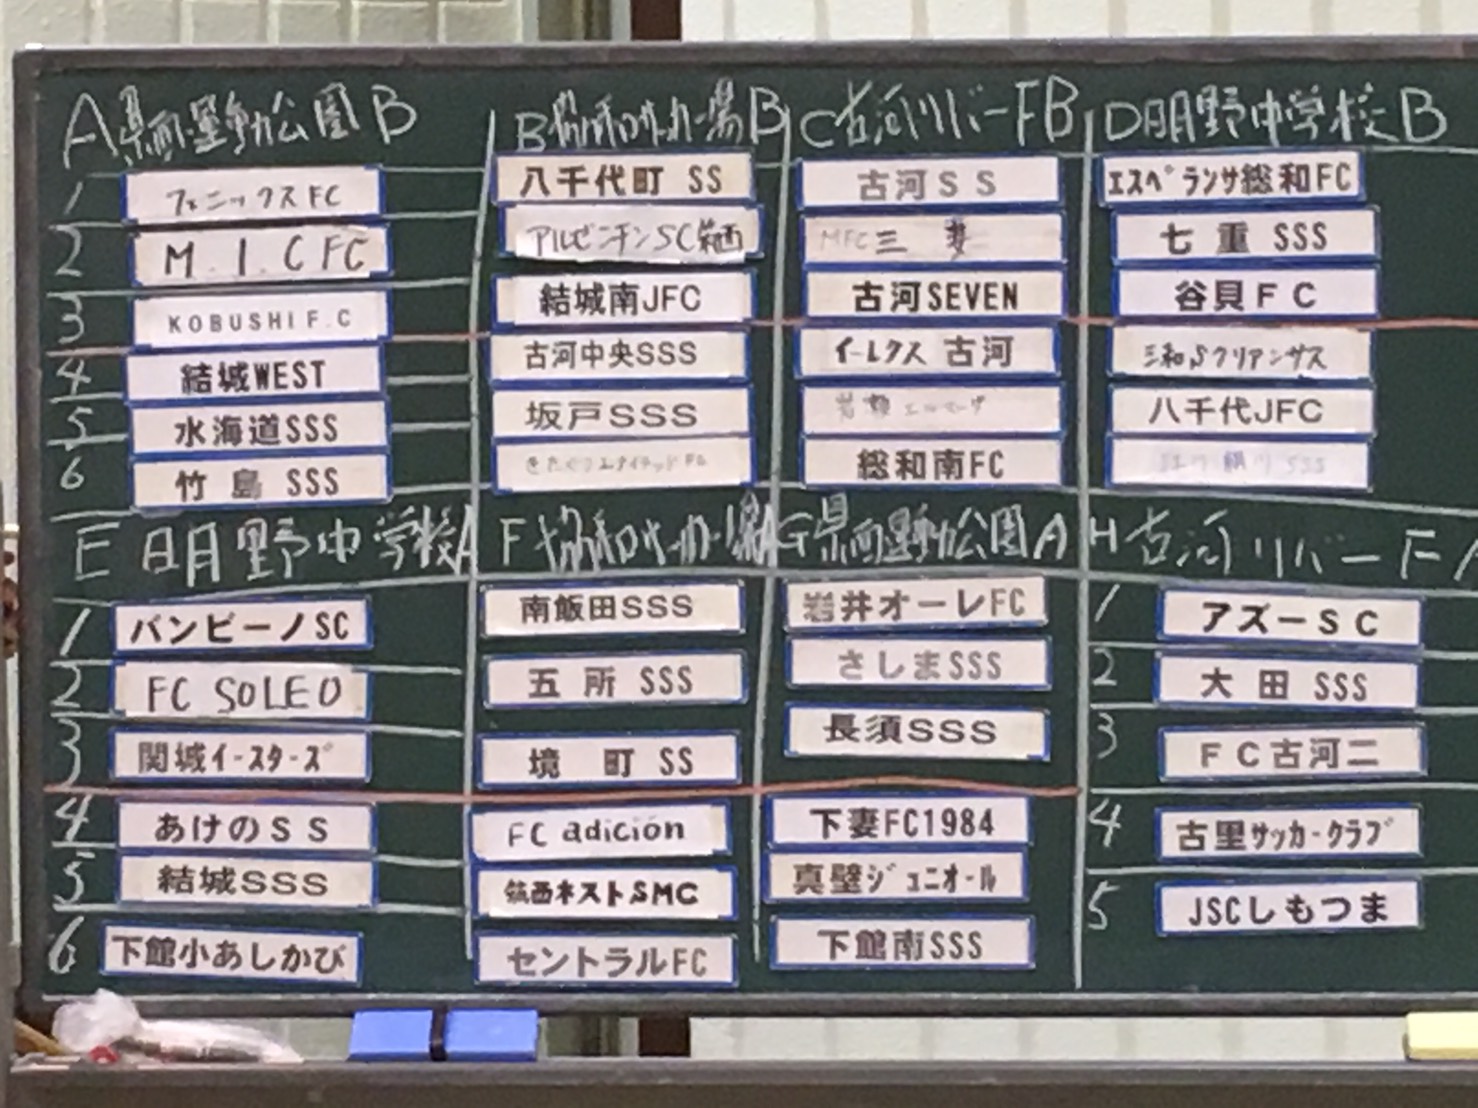 A 県西運動公園 B
B 協和サッカー場 B
C 古河リバーF B
D 明野中学校 B
1 フェニックスFC
2 M.I.C FC
3 KOBUSHI F.C
4 結城WEST
5 水海道SSS
6 竹島 SSS
八千代町 SS
アルビレオSC筑西
結城南JFC
古河中央SSS
坂戸SSS
古河SS
MFC三妻
古河SEVEN
イーレクス 古河
岩瀬
総和南FC
エスペランサ総和FC
七重 SSS
谷貝FC
三和
八千代JFC
SSS
E 明野中学校A
F 協和サッカー場A
G 県西運動公園A
H 古河リバーF A
1 バンビーノSC
2 FC SOLEO
3 関城イースターズ
4 あけのSS
5 結城SSS
6 下館小あしかび
南飯田SSS
五所 SSS
境町 SS
FC adición
筑西ネストSMC
セントラルFC
岩井オーレFC
さしまSSS
長須SSS
下妻FC1984
真壁ジュニオール
下館南SSS
1 アズーSC
2 大田 SSS
3 FC古河二
4 古里サッカークラブ
5 JSCしもつま